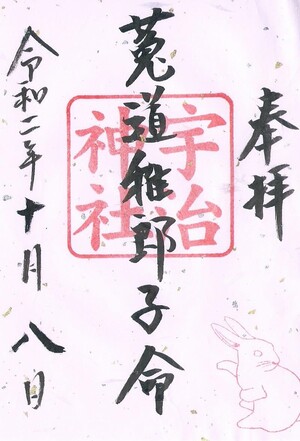 奉拝
菟道稚郎子命
宇治神社
令和二年十月八日